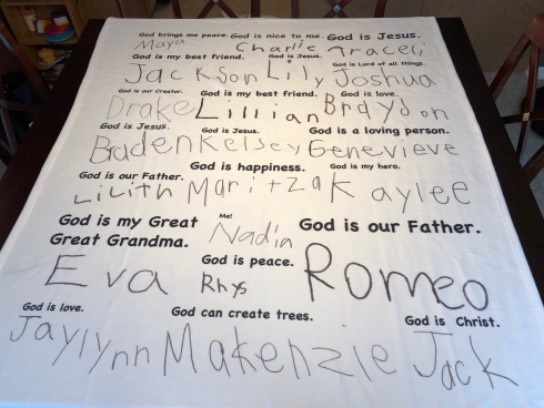 God brings me peace. God is nice to me. God is Jesus.
Maya Charlie Traceli
God is my best friend. God is Jesus. God is Lord of all things.
Jackson Lily Joshua
God is our Creator. God is my best friend. God is love.
Drake Lillian Braydon
God is Jesus. God is Jesus. God is a loving person.
Braden Kelsey Genevieve
God is our Father. God is happiness. God is my hero.
Lilith Maritza Kaylee
God is my Great Great Grandma.
Me!
God is our Father.
Nadia
God is peace.
Eva Rhys Romeo
God is love. God can create trees. God is Christ.
Jaylynn Makenzie Jack